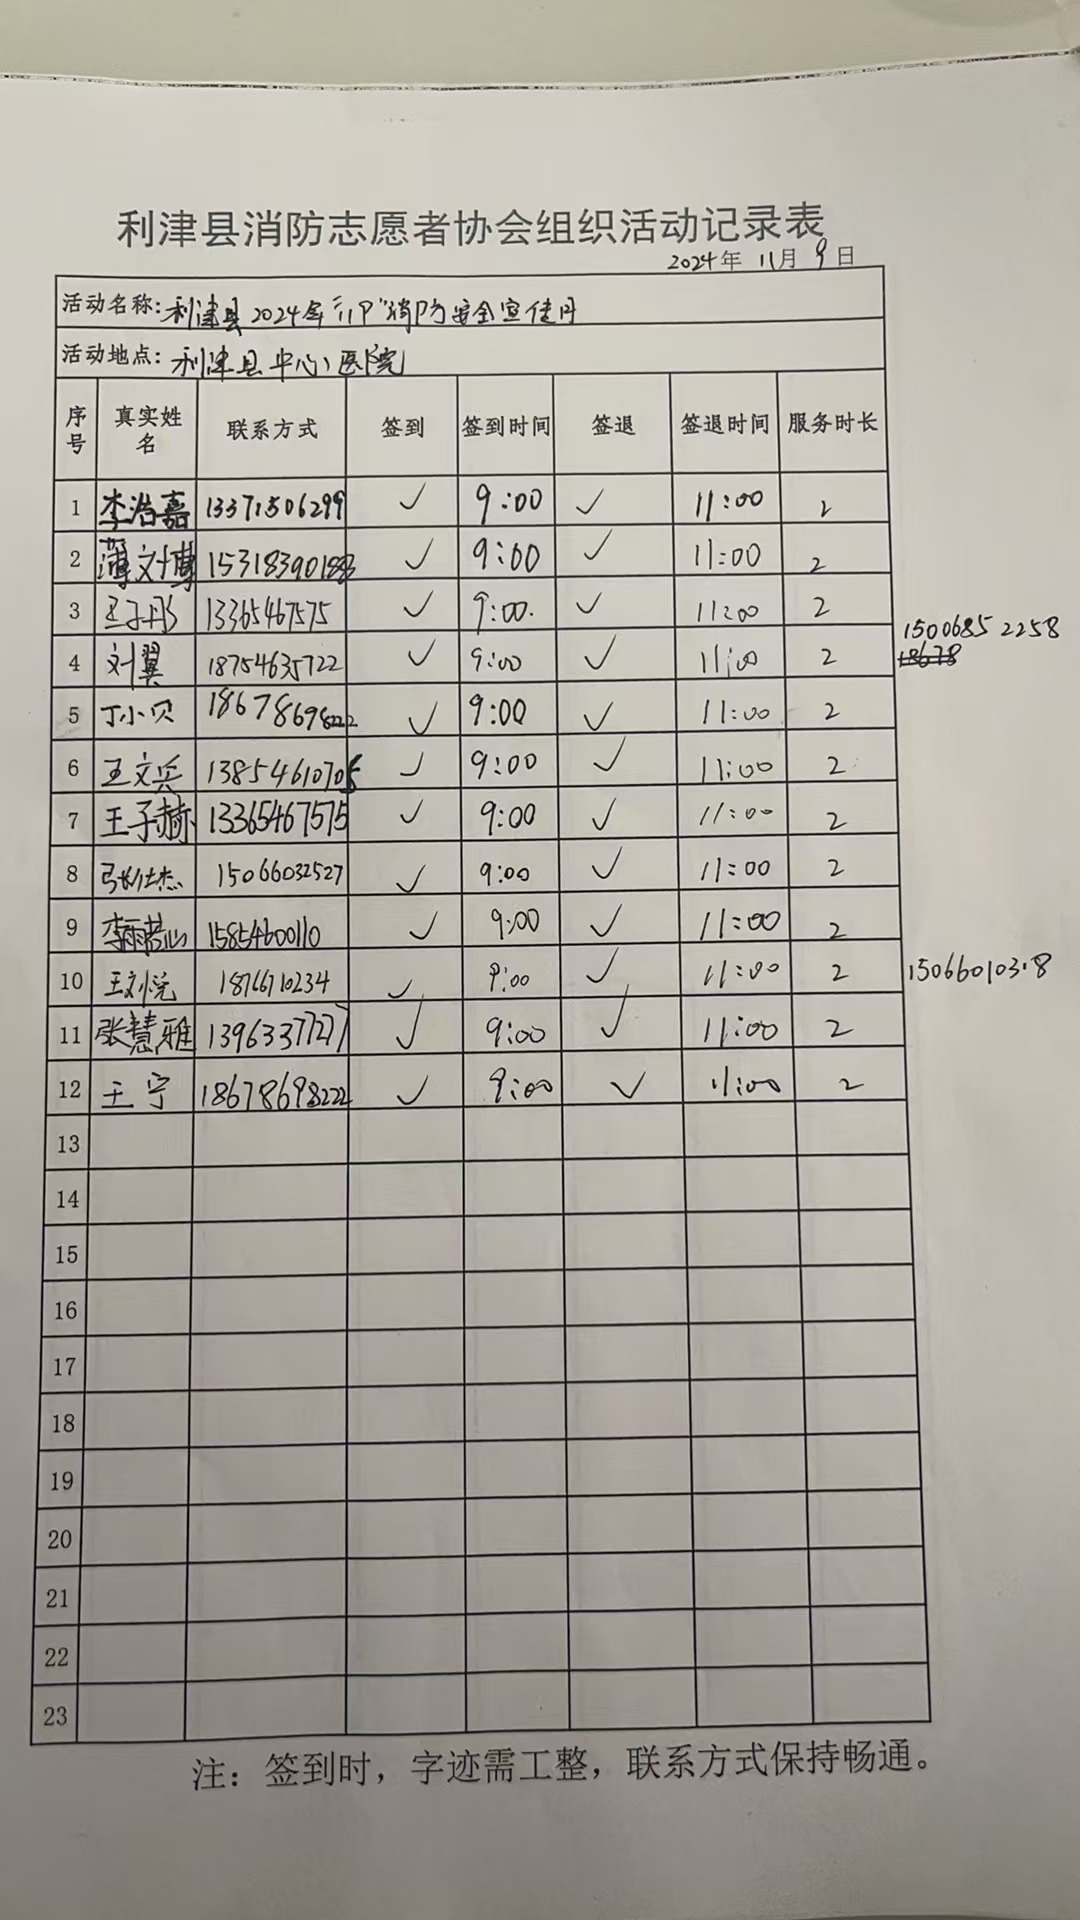 利津县消防志愿者协会组织活动记录表
2024年 11月 9日
活动名称: 利津县2024年"119"消防安全宣传月
活动地点: 利津县中心医院
序号 真实姓名 联系方式 签到 签到时间 签退 签退时间 服务时长
1 李浩嘉 13371506299 ✓ 9:00 ✓ 11:00 2
2 薄文博 ✓ 9:00 ✓ 11:00 2
3 王子彤 13365467575 ✓ 9:00. ✓ 11:00 2
15006852258
4 刘翼 18754635722 ✓ 9:00 ✓ 11:00 2 18678
5 丁小贝 18678698222 ✓ 9:00 ✓ 11:00 2
6 王文兵 13854610705 ✓ 9:00 ✓ 11:00 2
7 王子赫 13365467575 ✓ 9:00 ✓ 11:00 2
8 张仕杰 15066032527 ✓ 9:00 ✓ 11:00 2
9 李雨 15854600110 ✓ 9:00 ✓ 11:00 2
10 王刘悦 ✓ 9:00 ✓ 11:00 2 15066010318
11 张慧雅 13963377277 ✓ 9:00 ✓ 11:00 2
12 王宁 18678698222 ✓ 9:00 ✓ 11:00 2
13
14
15
16
17
18
19
20
21
22
23
注：签到时，字迹需工整，联系方式保持畅通。